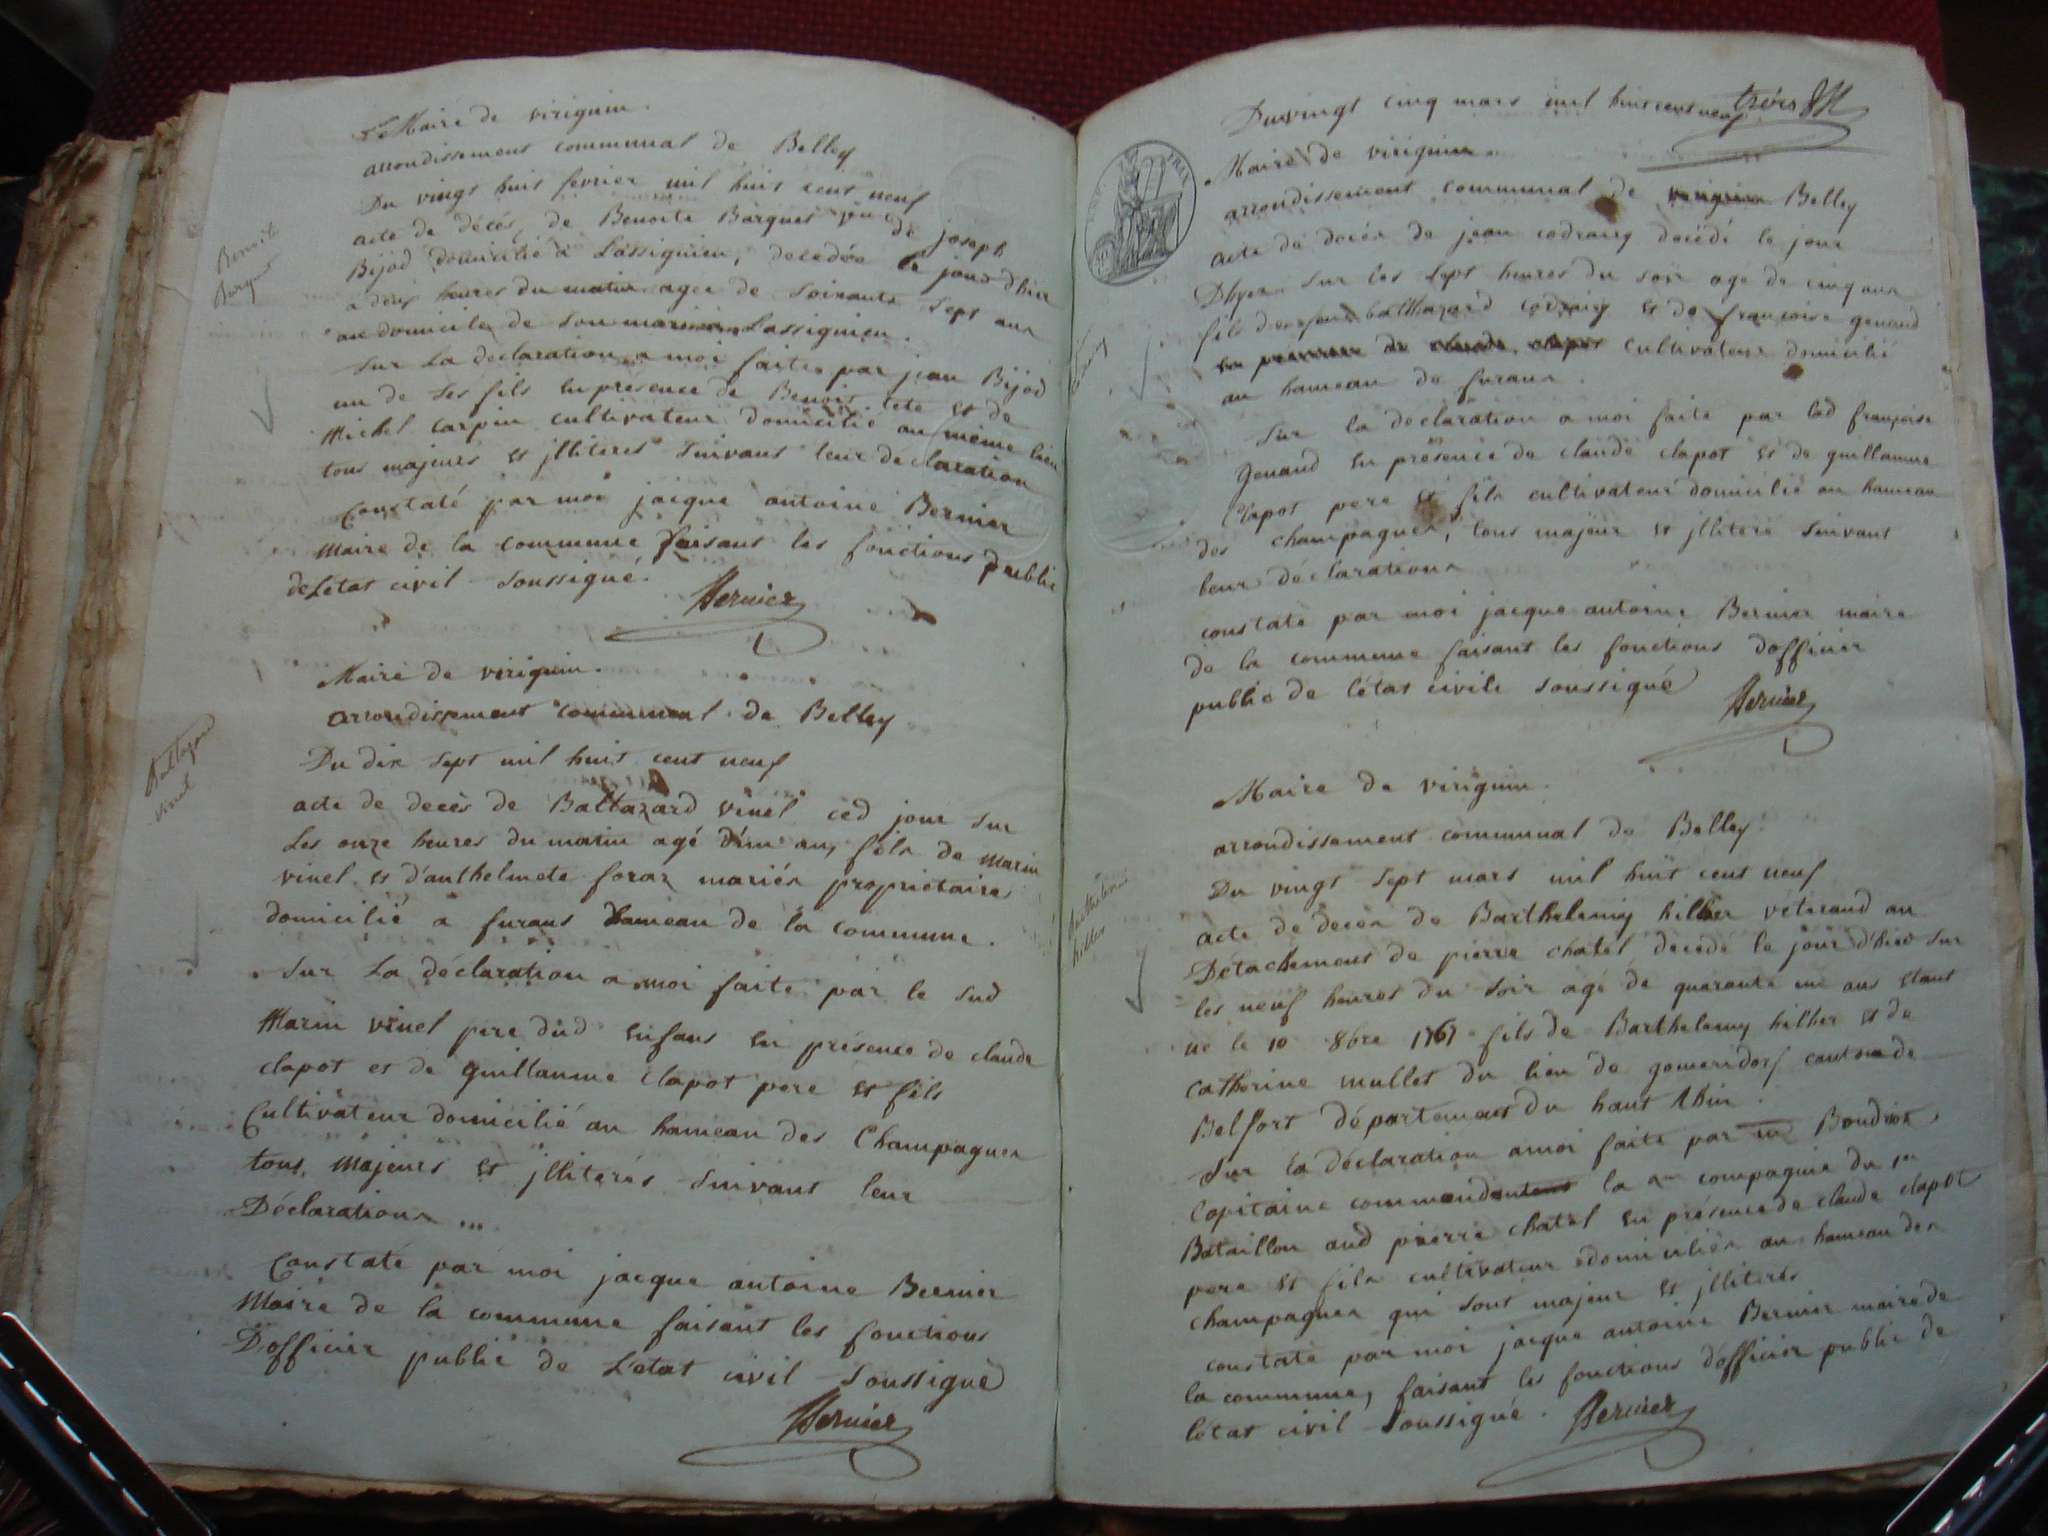 Le Maire de virignin.
arrondissement communal de Belley
Du vingt huit fevrier mil huit cent neuf
acte de décés, de Benoite Barquet de joseph
Bijod domicilié a Lassignieu, decedée le jour d'hier
a deux heures du matin agee de Soixante Sept ans
au domicile de Son mari Lassignieu.
Sur La declaration a moi faite par jean Bijod
un de Ses fils en présence de Benoit tete et de
Michel Carpin cultivateur domicilié au même lieu
tous majeurs et jlliterés Suivant leur declaration
Constaté par moi jacque antoine Bernier
Maire de la commune faisant les fonctions public
de L'etat civil Soussigné.
Bernier
Benoite
Barquet
Maire de virignin.
arrondissement communal de Belley
Du dix Sept mil huit cent neuf
acte de decès de Baltazard vinel ced jour Sur
Les onze heures du matin agé d'un an, fils de Marin
vinel et d'anthelmete foraz mariés propriétaires
domicilié a furans hameau de la commune.
Sur La déclaration a moi faite par le Sud
Marin vinel pere dud enfans en présence de claude
clapot et de guillaume clapot pere et fils
Cultivateur domicilié au hameau des Champagnes
tous majeurs et jlliterés Suivant leur
Déclarations ...
Constaté par moi jacque antoine Bernier
Maire de la commune faisant les fonctions
D'officier public de L'etat civil Soussigné
Bernier
Baltazard
vinel
Du vingt cinq mars mil huit cent neuf
Maire de virignin
arrondissement communal de Belley
acte de decés de jean codraiy decédé le jour
D'hyer Sur les Sept heures du soir age de cinq ans
fils de balthazard codraiy et de françoise genaud
cultivateur domicilié
au hameau de furans.
Sur la declaration a moi faite par lad françoise
Genaud en présence de claude clapot et de guillaume
Clapot pere et fils cultivateur domicilié au hameau
des champagnes, tous majeur et jlliteré Suivant
leur déclarations
constaté par moi jacque antoine Bernier maire
de la commune faisant les fonctions d'officier
public de l'état civile Soussigné
Bernier
Maire de virignin.
arrondissement communal de Belley.
Du vingt Sept mars mil huit cent neuf
acte de decés de Barthelemiy hilher véterand au
Détachement de pierre chatel decédé le jour d'hier Sur
les neuf heures du Soir agé de quarante un ans etant
né le 10 8bre 1767 fils de Barthelemy hilher et de
Catherine mullet du lieu de canton de
Belfort département du haut Rhin.
Sur la déclaration a moi faite par Boudrot
Capitaine la compagnie du 1er
Bataillon aud pierre chatel en présence de claude clapot
pere et fils cultivateur domiciliés au hameau des
Champagnes qui Sont majeur et jlliterés
constaté par moi jacque antoine Bernier maire de
la commune, faisant les fonctions d'officier public de
l'état civil Soussigné.
Bernier